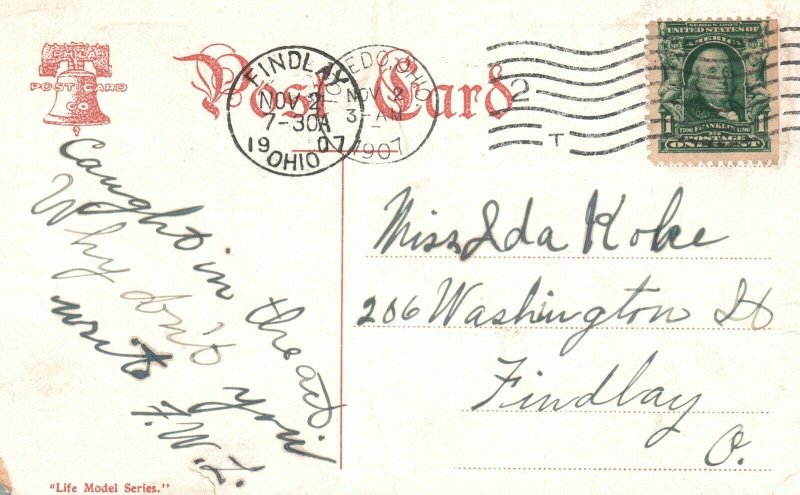 CHINA
POST CARD
CO
Post Card
FINDLAY
NOV 2
7-30A
1907
OHIO
TOLEDO, OHIO
NOV 2
3-AM
1907
2
T
SERIES 1902
UNITED STATES
OF AMERICA
1 FRANKLIN 1
1706 1790
POSTAGE
ONE CENT
Caught in the act
Why don't you
write
F.W.L.
Miss Ida Koke
206 Washington St
Findlay
O.
"Life Model Series."